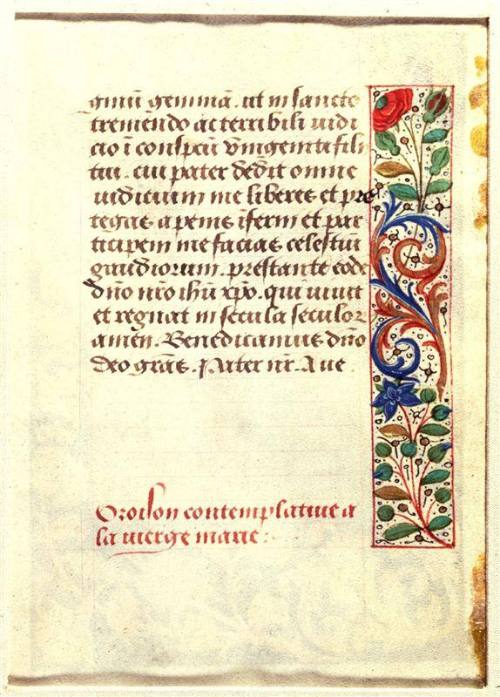 ginū gemmā. ut in sancto
tremendo ac terribili iudi
cio ī conspctū vnigeniti filii
tui. cui pater dedit omne
iudicium me liberes et pro
tegas a penis īferni et par
ticipem me facias celestiū
gaudiorum. prestante eodē
dño nro ihū xpo. qui viuit
et regnat in secula seculor
amen. Benedicamus dño
deo grās. Pater nr. Aue
Oroison contemplatiue a
la vierge marie: